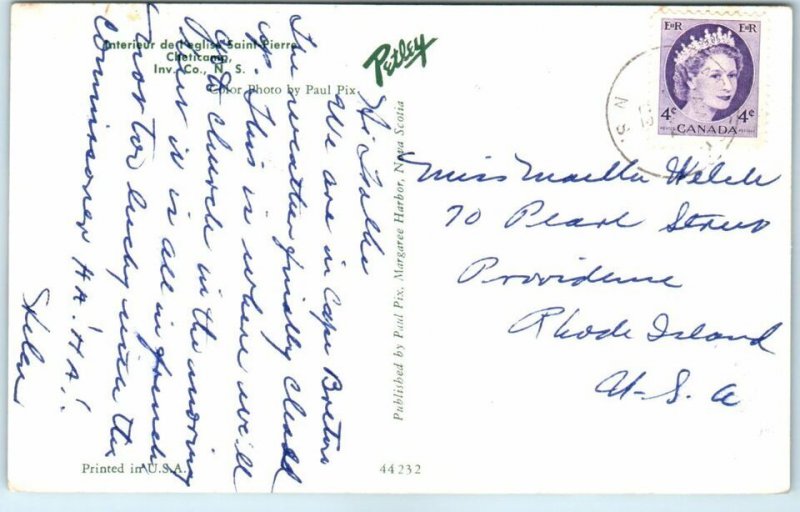 Interieur de l'eglise Saint Pierre
Cheticamp,
Inv. Co., N. S.
Color Photo by Paul Pix
Petley
Hi
We are in Cape Breton
The weather finally cleared
up. This is where we'll
go to church in the morning
is all in french
not too lucky with the
commissioner HA! HA!.
Helen
Published by Paul Pix, Margaree Harbor, Nova Scotia
E II R E II R
4¢ 4¢
CANADA
POSTES POSTAGE
N S
Miss Welch
70 Pearl Street
Providence
Rhode Island
U.S.A
Printed in U.S.A.
44232